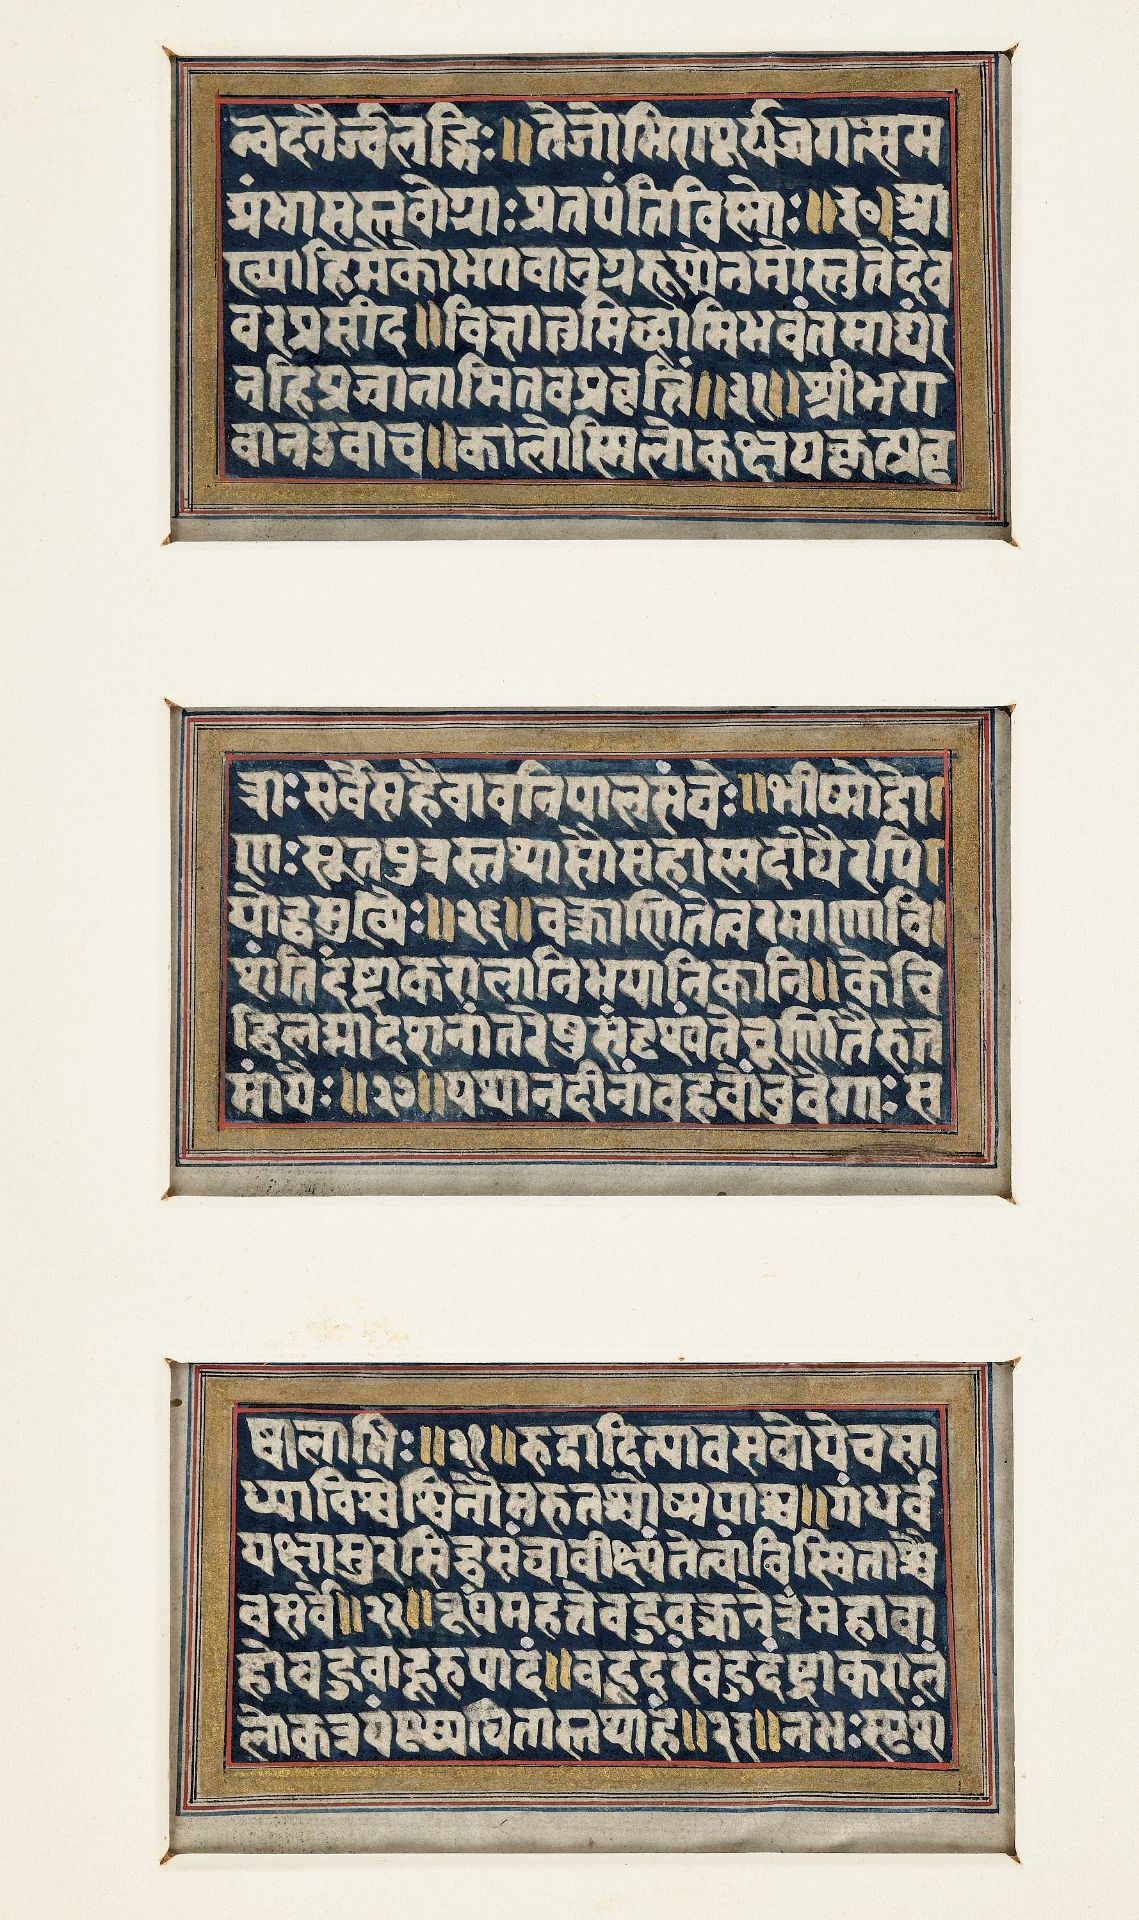 न्वदनैर्ज्वलद्भिः॥तेजोभिरापूर्यजगत्सम
ग्रंभासस्तवोग्राः प्रतपंतिविष्णोः॥३०॥आ
ख्याहिमेकोभगवानुग्ररूपोनमोस्तुतेदेव
वरप्रसीद॥विज्ञातुमिच्छामिभवंतमाद्यं
नहिप्रजानामितवप्रवृत्तिं॥३१॥श्रीभग
वानउवाच॥कालोस्मिलोकक्षयकृत्प्रवृ
त्राः सर्वेसहैवावनिपालसंघैः॥भीष्मोद्रो
णः सूतपुत्रस्तथासौसहास्मदीयैरपि
योधमुख्यैः॥२६॥वक्त्राणितेत्वरमाणावि
शंतिदंष्ट्राकरालानिभयानिकानि॥केचि
द्विलग्नादशनांतरेषुसंदृश्यंतेचूर्णितैरुत
मांगैः॥२७॥यथानदीनांबहवोंबुवेगाः स
ष्कलाभिः॥२१॥रुद्रादित्यावसवोयेचसा
ध्याविश्वेश्विनौमरुतश्चोष्मपाश्च॥गंधर्व
यक्षासुरसिद्धसंघावीक्ष्यंतेत्वांविस्मिताश्चै
वसर्वे॥२२॥रूपंमहत्तेबहुवक्त्रनेत्रंमहाबा
होबहुबाहूरुपादं॥बहूदरंबहुदंष्ट्राकरालं
लोकत्रयंप्रव्यथितास्तथाहं॥२३॥नभःस्पृशं